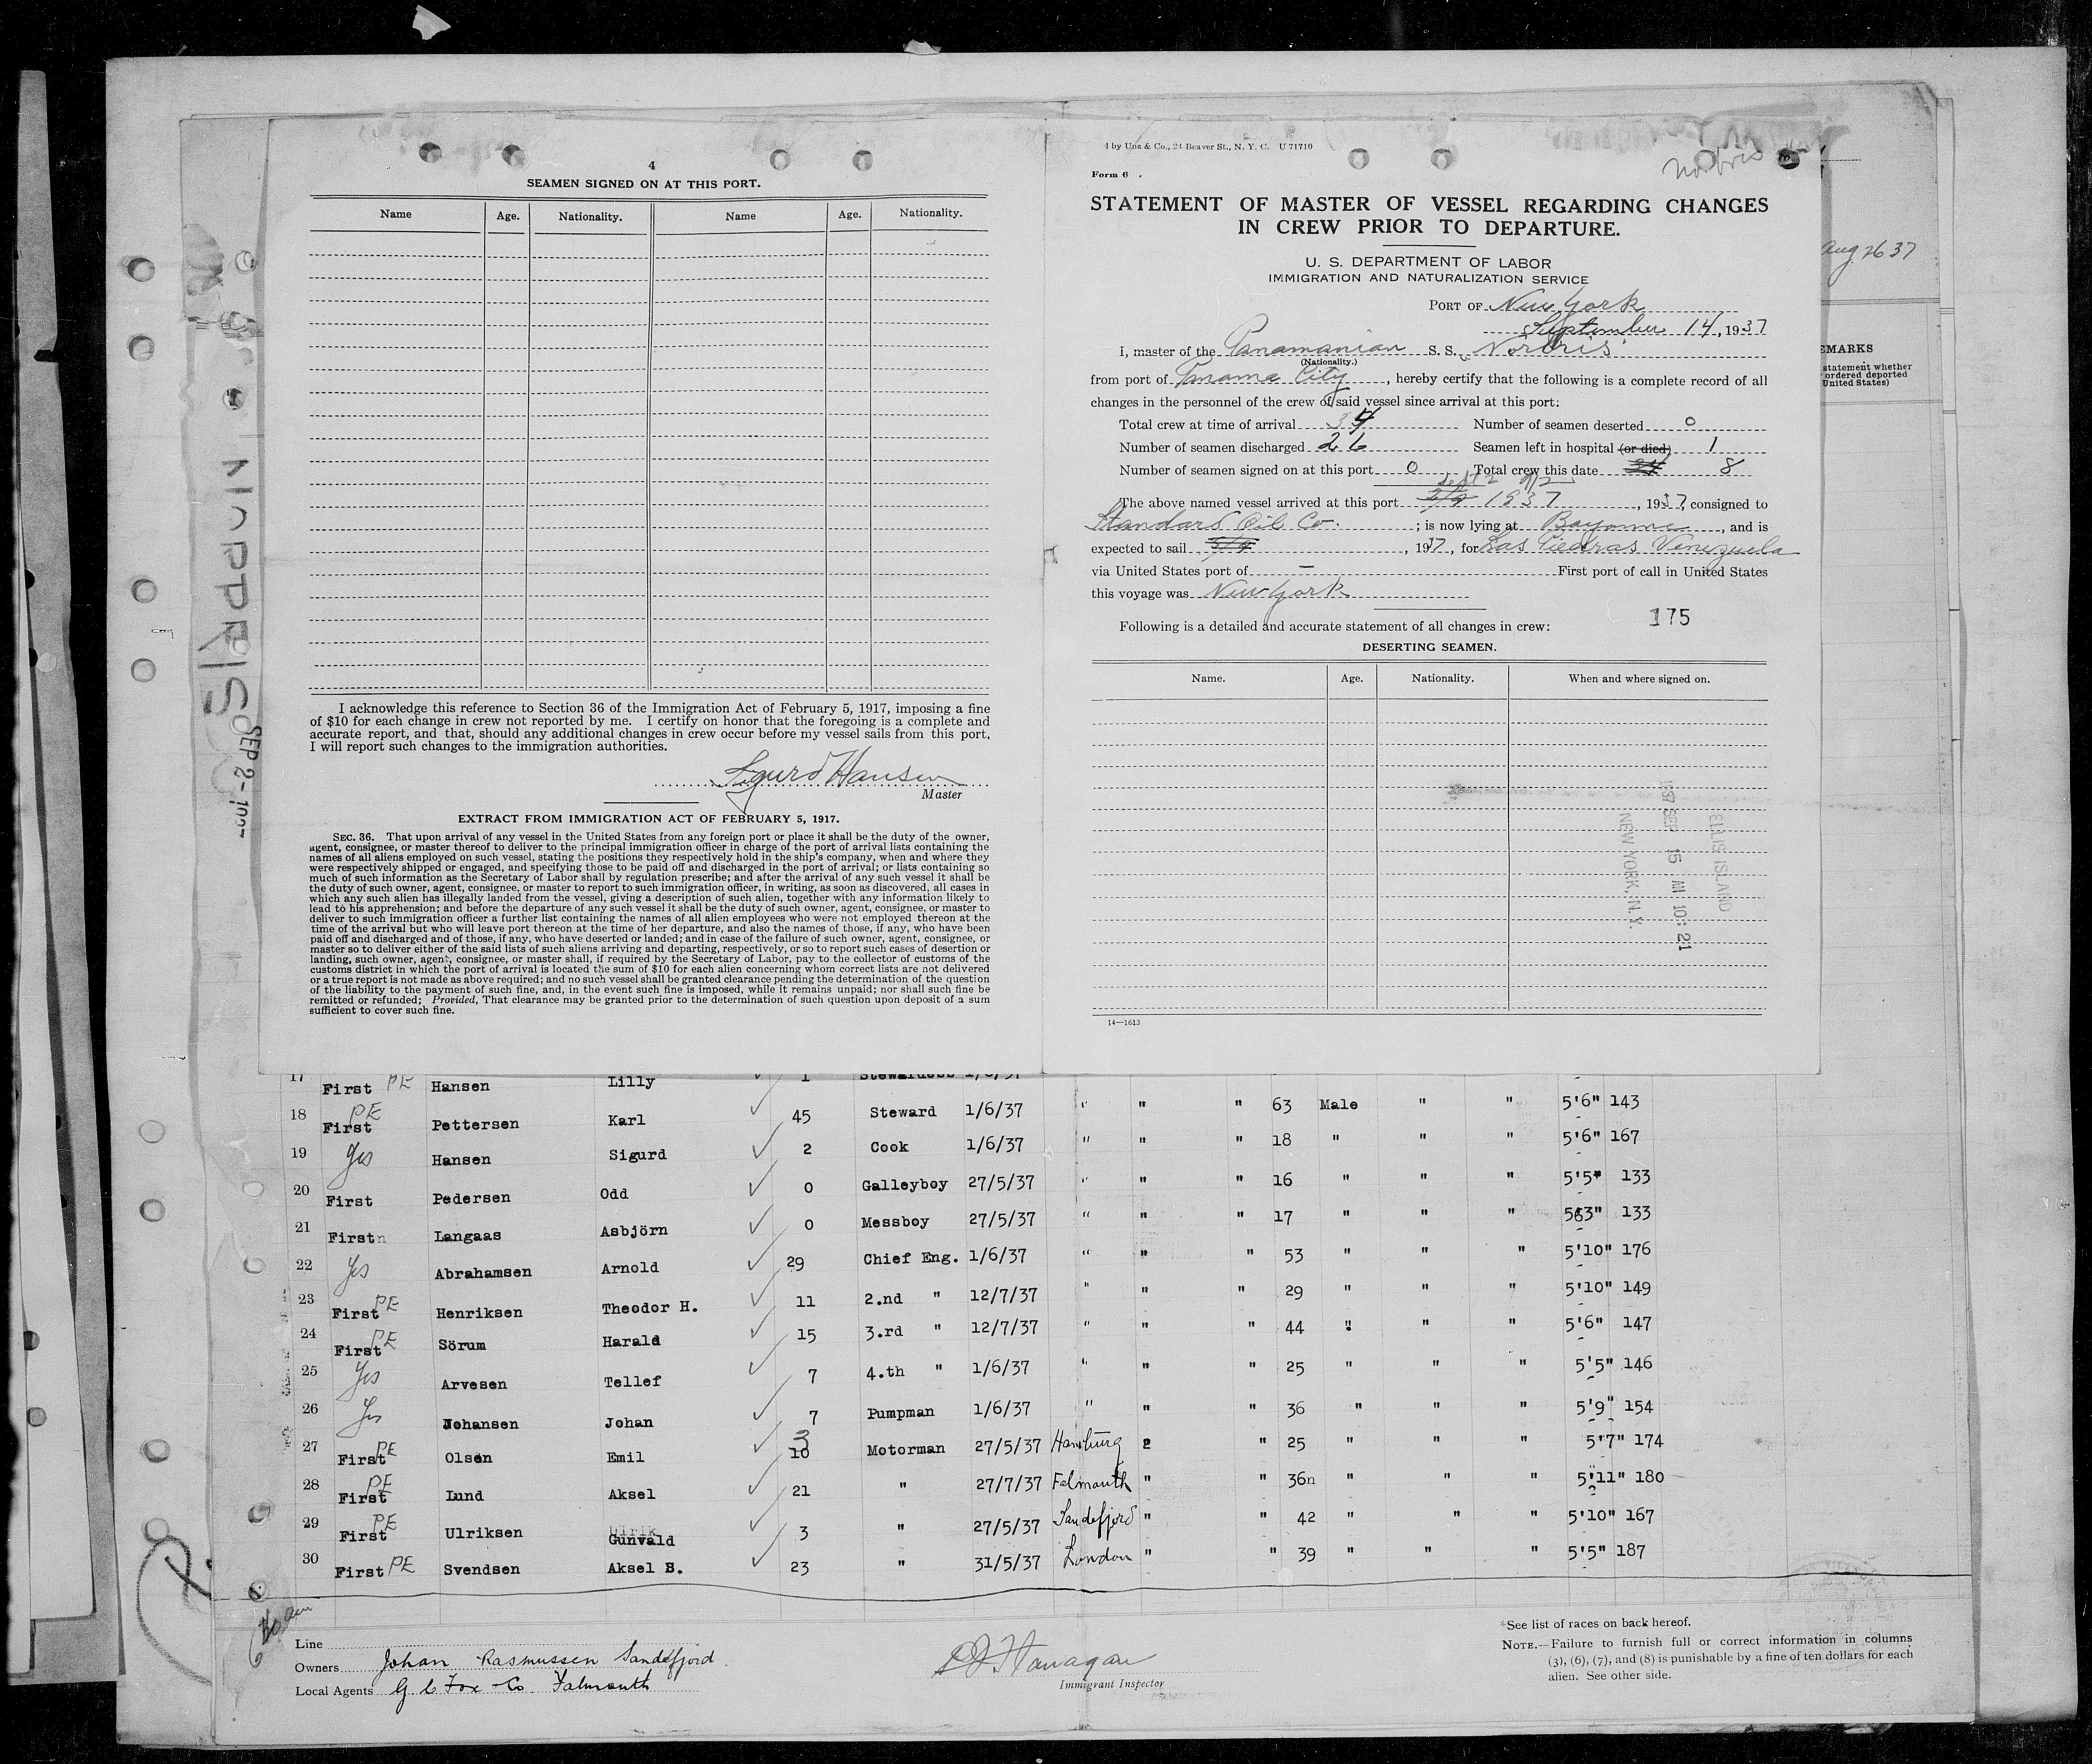 4
SEAMEN SIGNED ON AT THIS PORT.
Name Age. Nationality. Name Age. Nationality.
I acknowledge this reference to Section 36 of the Immigration Act of February 5, 1917, imposing a fine
of $10 for each change in crew not reported by me. I certify on honor that the foregoing is a complete and
accurate report, and that, should any additional changes in crew occur before my vessel sails from this port,
I will report such changes to the immigration authorities.
Sigurd Hansen
Master
EXTRACT FROM IMMIGRATION ACT OF FEBRUARY 5, 1917.
SEC. 36. That upon arrival of any vessel in the United States from any foreign port or place it shall be the duty of the owner,
agent, consignee, or master thereof to deliver to the principal immigration officer in charge of the port of arrival lists containing the
names of all aliens employed on such vessel, stating the positions they respectively hold in the ship's company, when and where they
were respectively shipped or engaged, and specifying those to be paid off and discharged in the port of arrival; or lists containing so
much of such information as the Secretary of Labor shall by regulation prescribe; and after the arrival of any such vessel it shall be
the duty of such owner, agent, consignee, or master to report to such immigration officer, in writing, as soon as discovered, all cases in
which any such alien has illegally landed from the vessel, giving a description of such alien, together with any information likely to
lead to his apprehension; and before the departure of any such vessel it shall be the duty of such owner, agent, consignee, or master to
deliver to such immigration officer a further list containing the names of all alien employees who were not employed thereon at the
time of the arrival but who will leave port thereon at the time of her departure, and also the names of those, if any, who have been
paid off and discharged and of those, if any, who have deserted or landed; and in case of the failure of such owner, agent, consignee, or
master so to deliver either of the said lists of such aliens arriving and departing, respectively, or so to report such cases of desertion or
landing, such owner, agent, consignee, or master shall, if required by the Secretary of Labor, pay to the collector of customs of the
customs district in which the port of arrival is located the sum of $10 for each alien concerning whom correct lists are not delivered
or a true report is not made as above required; and no such vessel shall be granted clearance pending the determination of the question
of the liability to the payment of such fine, and, in the event such fine is imposed, while it remains unpaid; nor shall such fine be
remitted or refunded; Provided, That clearance may be granted prior to the determination of such question upon deposit of a sum
sufficient to cover such fine.
d by Unz & Co., 24 Beaver St., N. Y. C. U 71710
Form 6
STATEMENT OF MASTER OF VESSEL REGARDING CHANGES
IN CREW PRIOR TO DEPARTURE.
U. S. DEPARTMENT OF LABOR
IMMIGRATION AND NATURALIZATION SERVICE
PORT OF New York
September 14, 1937
I, master of the Panamanian S. S. Norbris
(Nationality.)
from port of Panama City, hereby certify that the following is a complete record of all
changes in the personnel of the crew of said vessel since arrival at this port:
Total crew at time of arrival 34 Number of seamen deserted 0
Number of seamen discharged 26 Seamen left in hospital (or died) 1
Number of seamen signed on at this port 0 Total crew this date 34 8
The above named vessel arrived at this port 2/9 1937, 1937, consigned to
Standard Oil Co. ; is now lying at Bayonne, and is
expected to sail 5/9, 1937, for Las Piedras Venezuela
via United States port of — First port of call in United States
this voyage was New York
175
Following is a detailed and accurate statement of all changes in crew:
DESERTING SEAMEN.
Name. Age. Nationality. When and where signed on.
ELLIS ISLAND
1937 SEP 15 AM 10:21
NEW YORK, N.Y.
14—1613
Aug 26 37
EMARKS
statement whether
ordered deported
United States)
SEP 2 -
17 First PE Hansen Lilly 1 Stewardess 1/6/37
18 First PE Pettersen Karl 45 Steward 1/6/37 " " " 63 Male " " 5'6" 143
19 Yes Hansen Sigurd 2 Cook 1/6/37 " " " 18 " " " 5'6" 167
20 First Pedersen Odd 0 Galleyboy 27/5/37 " " " 16 " " " 5'5" 133
21 Firstn Langaas Asbjörn 0 Messboy 27/5/37 " " " 17 " " " 563" 133
22 Yes Abrahamsen Arnold 29 Chief Eng. 1/6/37 " " " 53 " " " 5'10" 176
23 First PE Henriksen Theodor H. 11 2.nd " 12/7/37 " " " 29 " " " 5'10" 149
24 First PE Sörum Harald 15 3.rd " 12/7/37 " " " 44 " " " 5'6" 147
25 Yes Arvesen Tellef 7 4.th " 1/6/37 " " " 25 " " " 5'5" 146
26 Yes Johansen Johan 7 Pumpman 1/6/37 " " " 36 " " " 5'9" 154
27 First PE Olsen Emil 3 10 Motorman 27/5/37 Hamburg " " 25 " " " 5'7" 174
28 First PE Lund Aksel 21 " 27/7/37 Falmouth " " 36n " " " 5'11" 180
29 First PE Ulriksen Gunvald 3 " 27/5/37 Sandefjord " " 42 " " " 5'10" 167
30 First PE Svendsen Aksel B. 23 " 31/5/37 London " " 39 " " " 5'5" 187
Line
Owners Johan Rasmussen Sandefjord
Local Agents G C Fox Co Falmouth
Flanagan
Immigrant Inspector
*See list of races on back hereof.
NOTE.—Failure to furnish full or correct information in columns
(3), (6), (7), and (8) is punishable by a fine of ten dollars for each
alien. See other side.